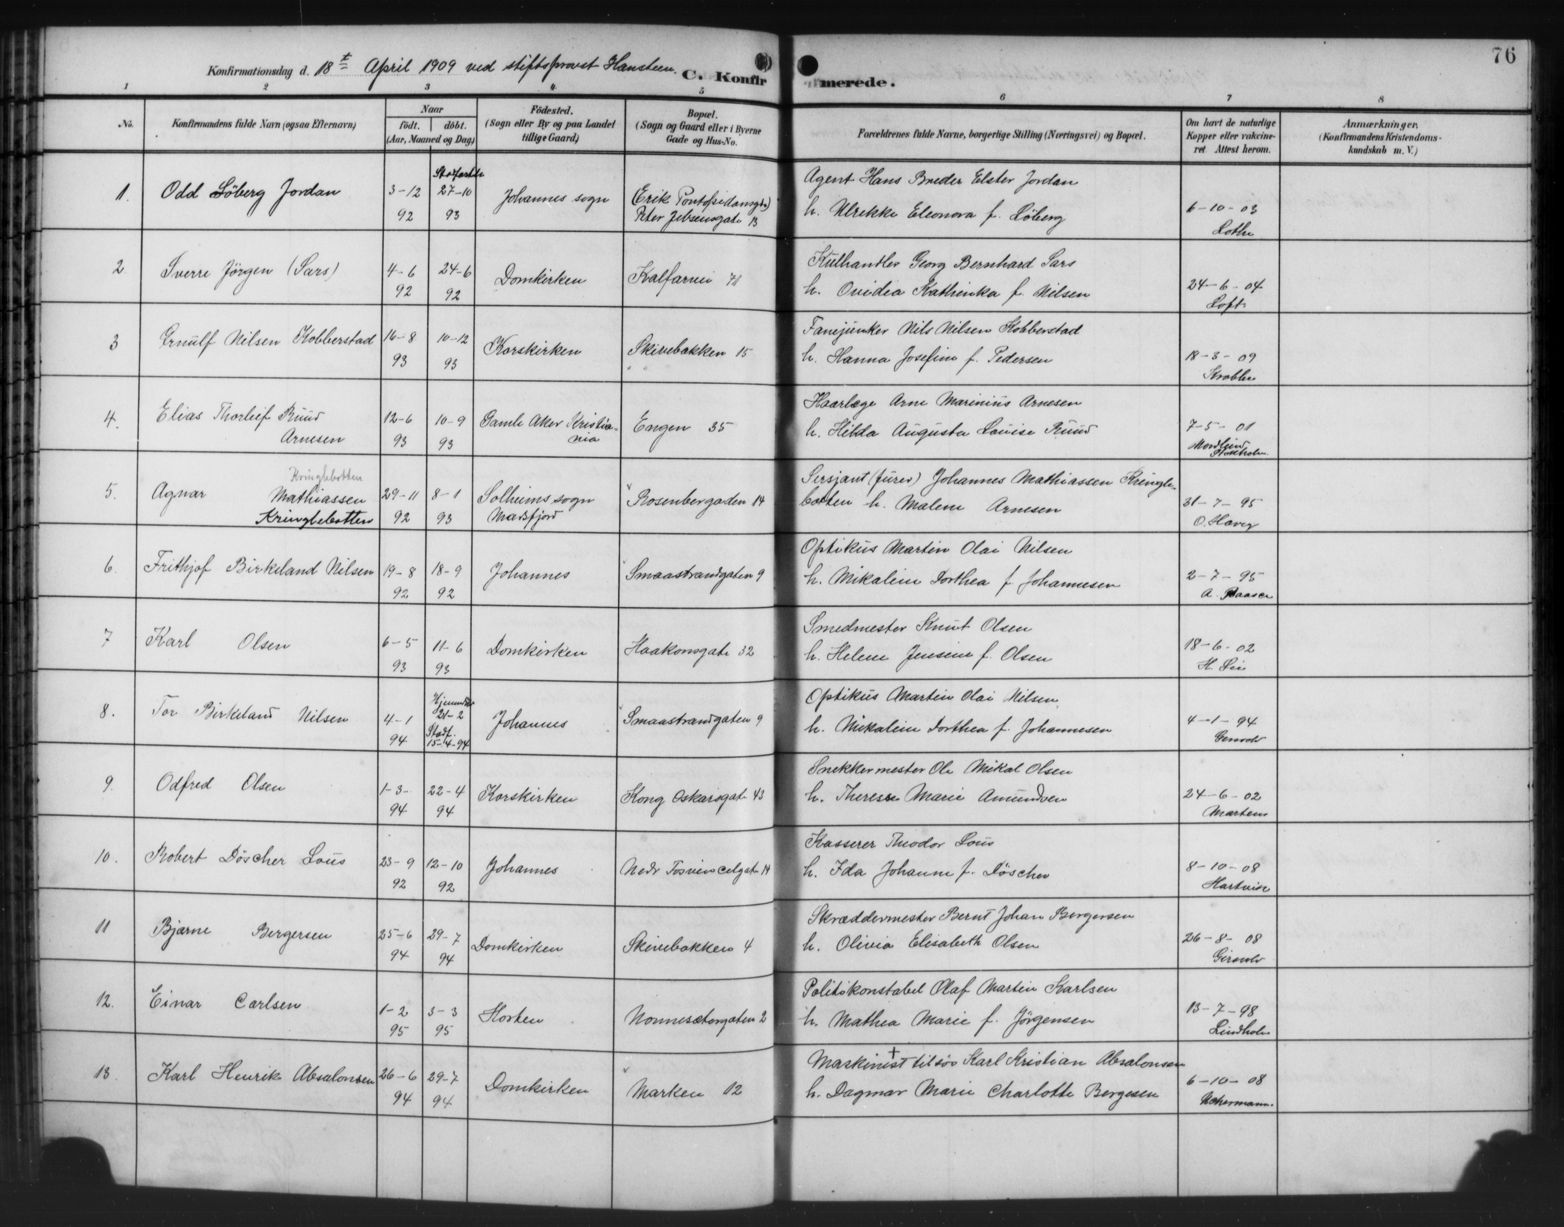 76
Konfirmationsdag d. 18t April 1909 ved stiftsprovst Hansteen.
C. Konfirmerede.
1 2 3 4 5 6 7 8
No.
Konfirmandens fulde Navn (ogsaa Efternavn)
Naar
født. døbt.
(Aar, Maaned og Dag)
Fødested.
(Sogn eller By og paa Landet
tillige Gaard)
Bopæl.
(Sogn og Gaard eller i Byerne
Gade og Hus-No.
Forældrenes fulde Navne, borgerlige Stilling (Næringsvei) og Bopæl.
Om havt de naturlige
Kopper eller vakcine-
ret Attest herom.
Anmærkninger,
(Konfirmandens Kristendoms-
kundskab m. V.)
1. Odd Löberg Jordan 3-12 92 27-10 93 Johannes sogn (Erik Pontoppidansgt)
Peter Jebsensgate 13
Agent Hans Breder Elster Jordan
h. Ulrikke Eleonora f. Löberg
6-10-03
Lothe
2 Sverre Jörgen (Sars) 4-6 92 24-6 92 Domkirken Kalfarvei 71
Kulhandler Georg Bernhard Sars
h. Ovidia Kathinka f. Nilsen
24-6-04
Loft
3 Ernulf Nilsen Kobberstad 16-8 93 10-12 93 Korskirken Skivebakken 15
Fanejunker Nils Nilsen Kobberstad
h. Hanna Josefine f. Pedersen
18-3-09
4. Elias Thorleif Ruud
Arnesen 12-6 93 10-9 93 Gamle Aker Kristia-
nia Engen 35
Haarlæge Arne Marinius Arnesen
h. Hilda Augusta Louise Ruud
7-5-01
5. Agnar Kringlebotten
Mathiassen
Kringlebotten 29-11 92 8-1 93 Solheims sogn
Masfjord Rosenbergaden 14
Sersjant (furer) Johannes Mathiassen Kringle-
botten h. Malene Arnesen
31-7-95
6. Frithjof Birkeland Nilsen 19-8 92 18-9 92 Johannes Smaastrandgaten 9
Optikus Martin Olai Nilsen
h. Mikaline Dorthea f. Johannesen
2-7-95
7 Karl Olsen 6-5 93 11-6 93 Domkirken Haakonsgate 32
Smedmester Knut Olsen
h. Helene Jensene f. Olsen
18-6-02
H. Lie
8. Tor Birkeland Nilsen 4-1 94 Hjemmdbt
21-2
Stadf.
15-4-94 Johannes Smaastrandgaten 9
Optikus Martin Olai Nilsen
h. Mikaline Dorthea f. Johannesen
4-1-94
9. Odfred Olsen 1-3- 94 22-4 94 Korskirken Kong Oskarsgate 43
Snekkermester Ole Mikal Olsen
h. Therese Marie Amundsen
24-6-02
Martens
10. Robert Döscher Lous 23-9 92 12-10 92 Johannes
Kasserer Theodor Lous
h. Ida Johanne f. Döscher
8-10-08
Hartvise
11 Bjarne Bergersen 25-6 94 29-7 94 Domkirken Skivebakken 4
Skræddermester Bernt Johan Bergersen
h. Olivia Elisabeth Olsen
26-8-08
12. Einar Carlsen 1-2 95 3-3 95 Horten Nonnesætergaten 2
Politikonstabel Olaf Martin Karlsen
h. Mathea Marie f. Jörgensen
13-7-98
Lindholm
13. Karl Henrik Absalonsen 26-6 94 29-7 94 Domkirken Marken 12
Maskinist + tilsös Karl Kristian Absalonsen
h. Dagmar Marie Charlotte Bergesen
6-10-08